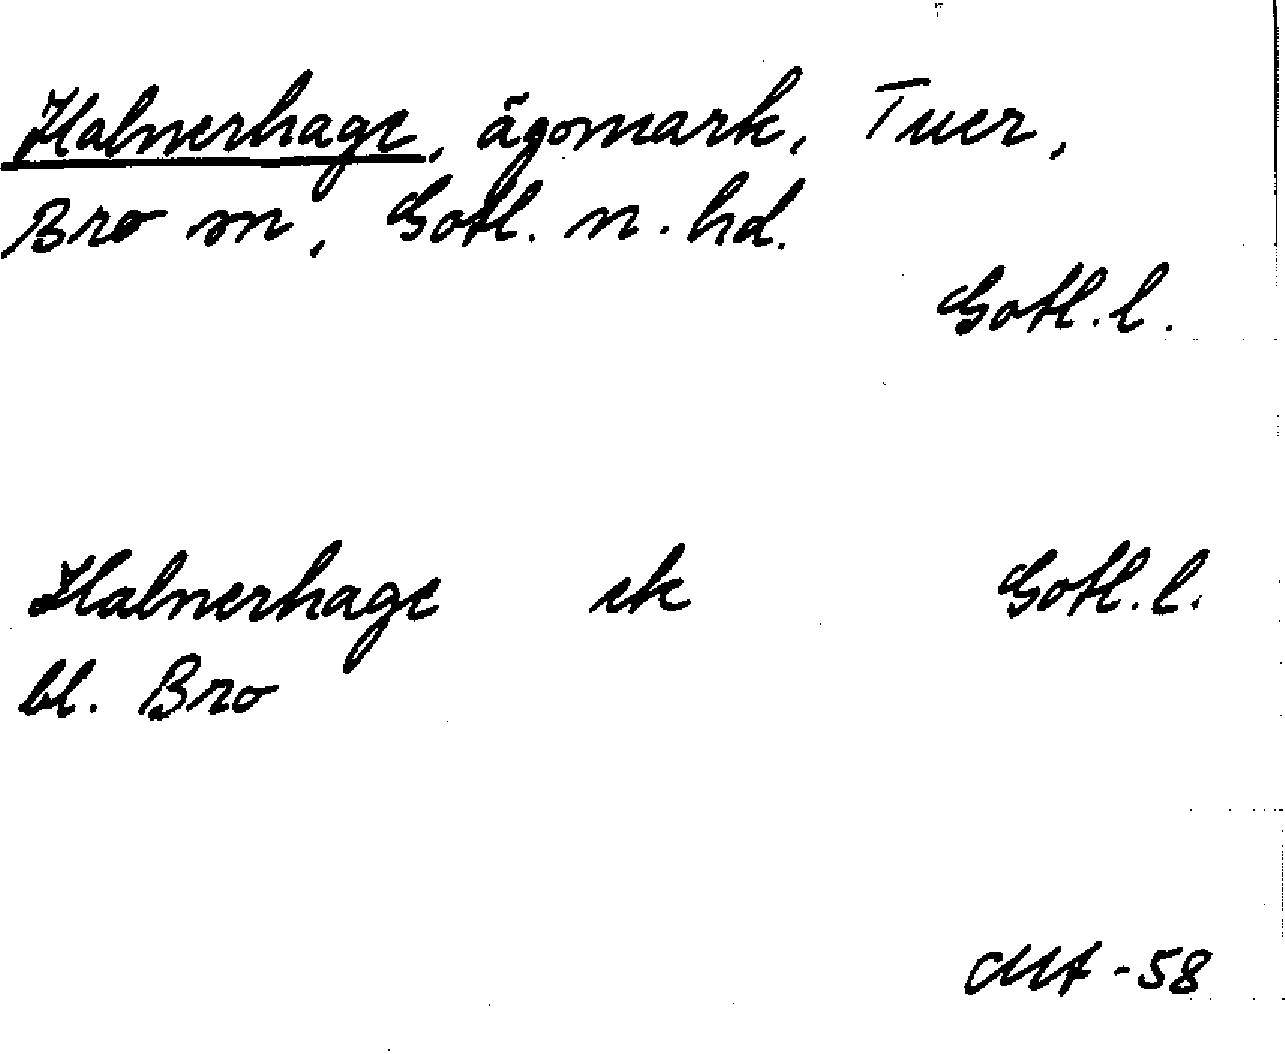 Halnerhage, ägomark, Tuer,
Bro sn, Gotl. n. hd.
Gotl. l.
Halnerhage ek Gotl. l.
bl. Bro
-58